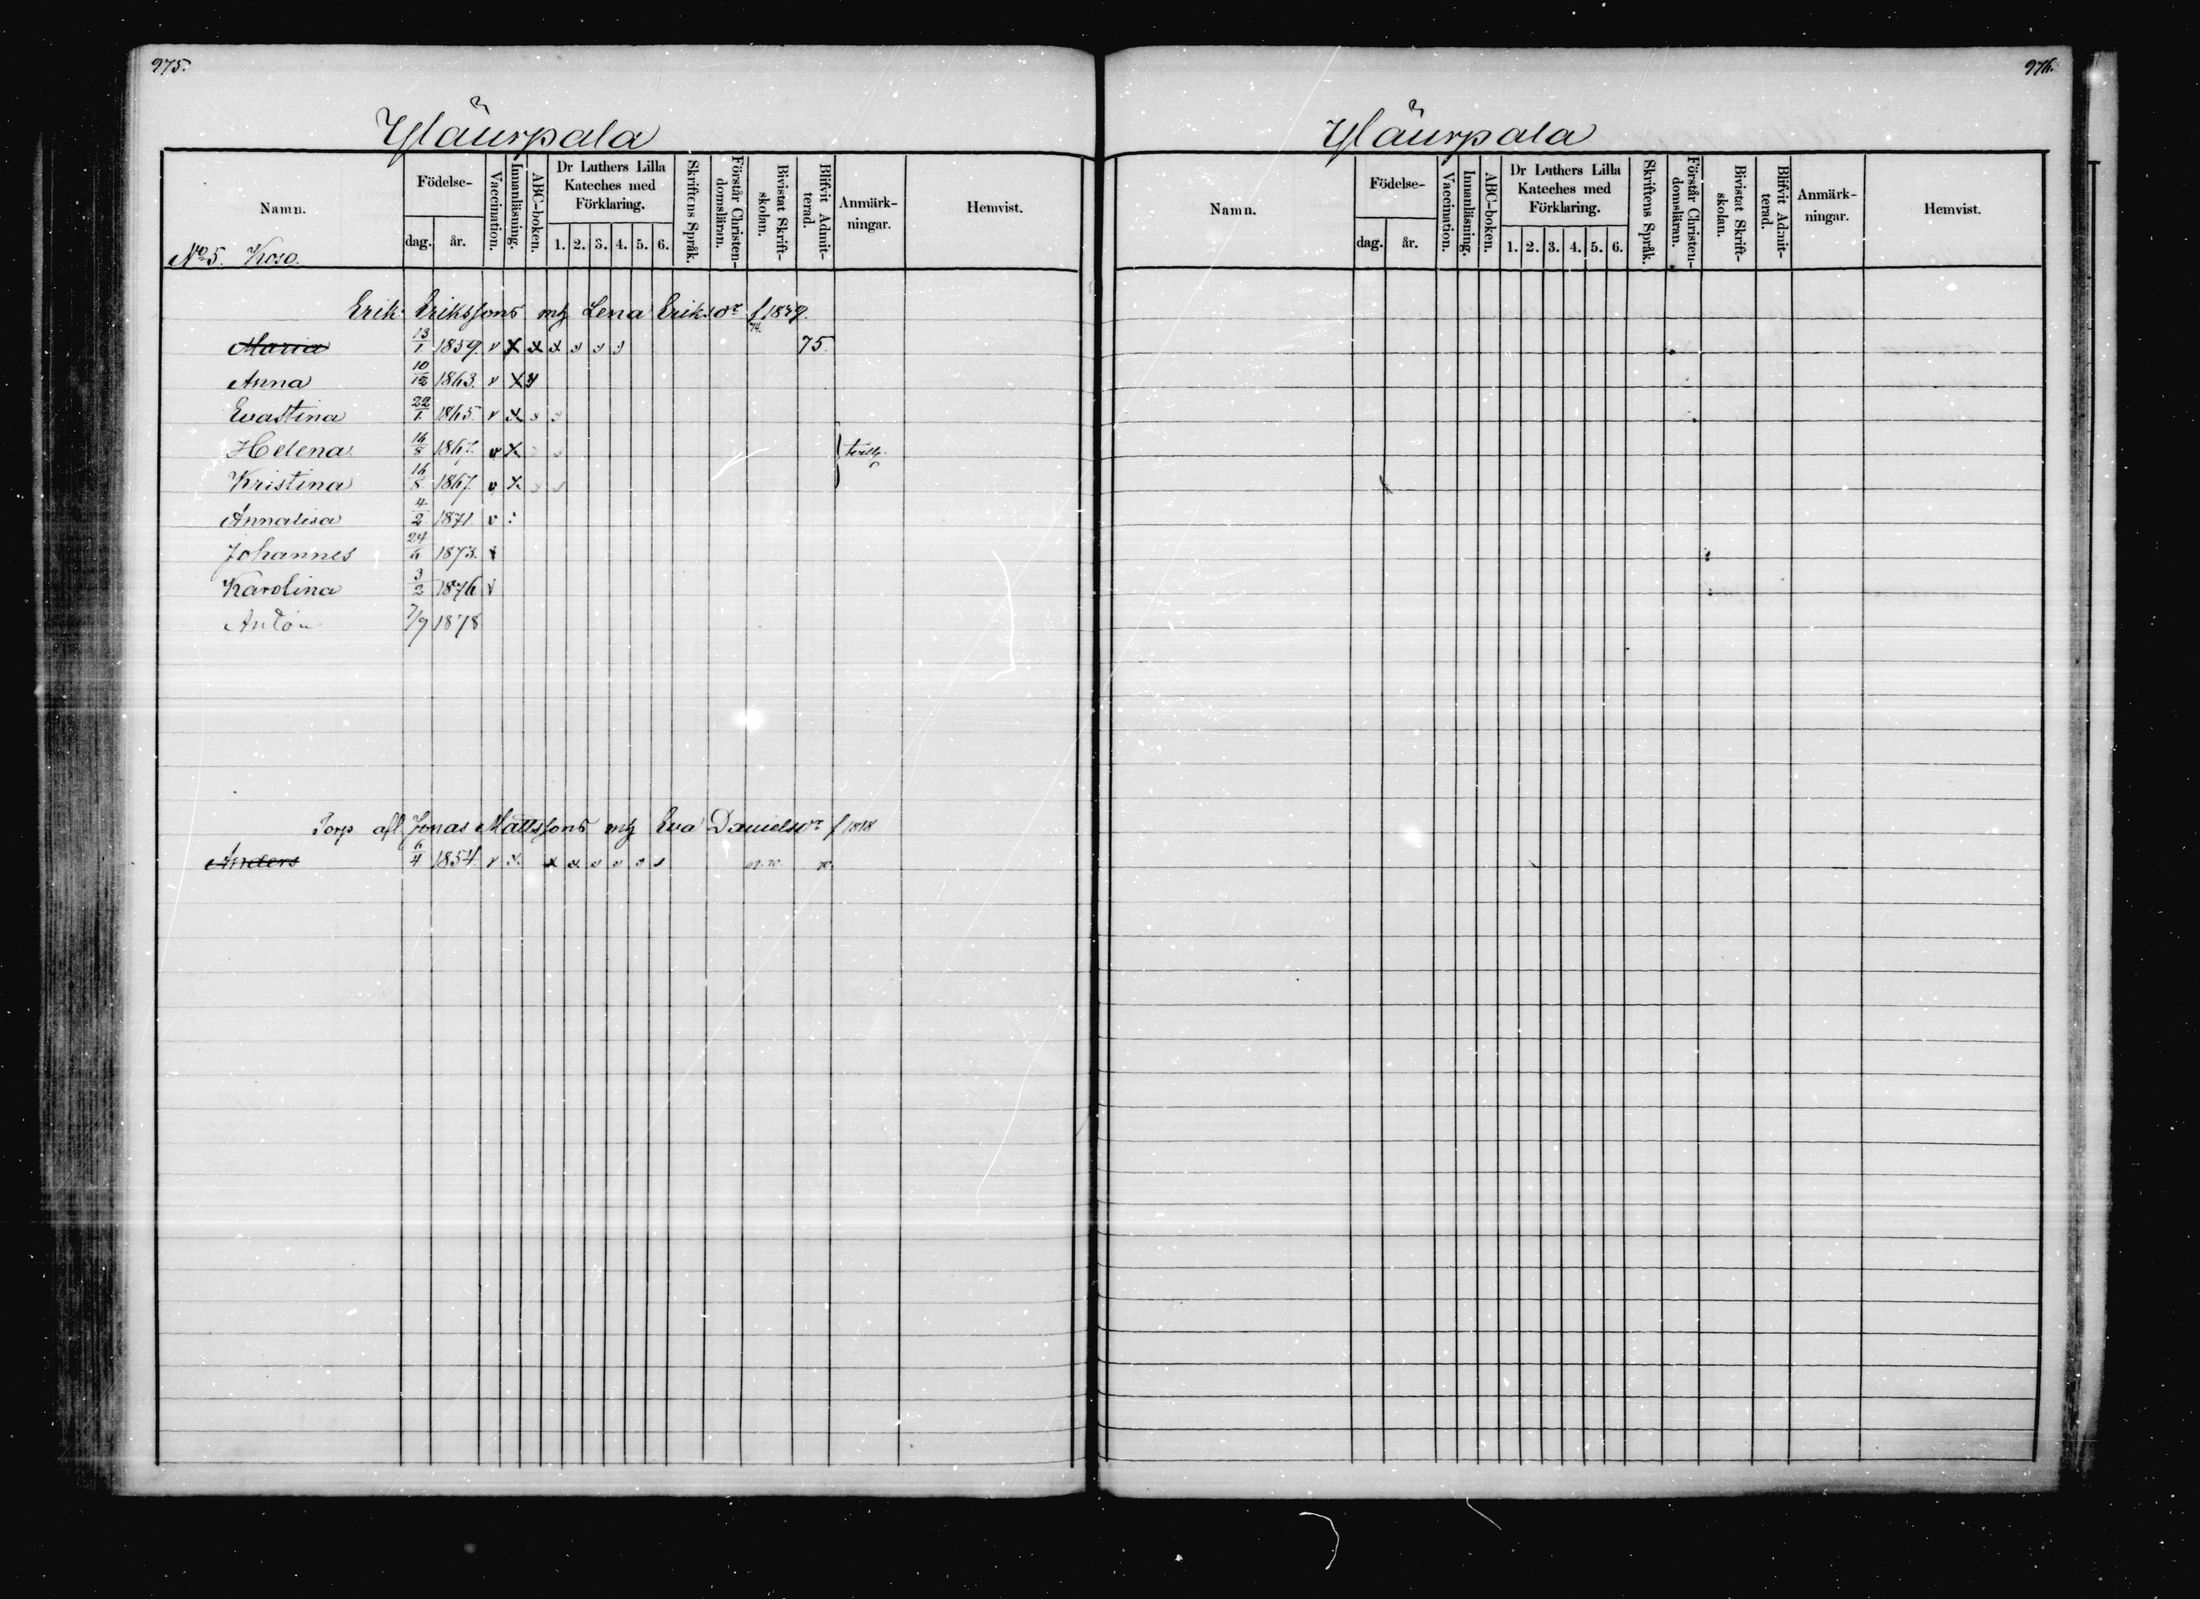 975.
976.
Yläurpala
Namn.
Födelse-
dag. år.
Vaccination.
Innanläsning.
ABC-boken.
Dr Luthers Lilla
Kateches med
Förklaring.
1. 2. 3. 4. 5. 6.
Skriftens Språk.
Förstår Christen-
domsläran.
Bivistat Skrift-
skolan.
Blifvit Admit-
terad.
Anmärk-
ningar.
Hemvist.
No 5. Koso.
Erik Erikssons Lena Eriksdr f 1839
Maria 13/1 1859. v x x x 74. 75.
Anna 10/12 1863. v x x
Evastina 22/1 1865. v x
Helena 16/8 1867. v x tvill.
Kristina 16/8 1867. v x
Annalisa 4/2 1871. v
Johannes 24/6 1873. v
Karolina 3/2 1876 v
Anton 7/9 1878
Torp afl Jonas Mattssons Eva Danielsdr f 1818
Anders 6/4 1854. v x x x 69.70. 70.
Yläurpala
Namn.
Födelse-
dag. år.
Vaccination.
Innanläsning.
ABC-boken.
Dr Luthers Lilla
Kateches med
Förklaring.
1. 2. 3. 4. 5. 6.
Skriftens Språk.
Förstår Christen-
domsläran.
Bivistat Skrift-
skolan.
Blifvit Admit-
terad.
Anmärk-
ningar.
Hemvist.